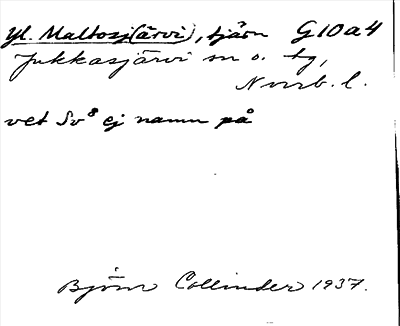 Yl. Maltosj(ärvi), tjärn G10a4
Jukkasjärvi sn o. tg,
Nrrb. l.
vet Sv⁸ ej namn på
Björn Collinder 1937.